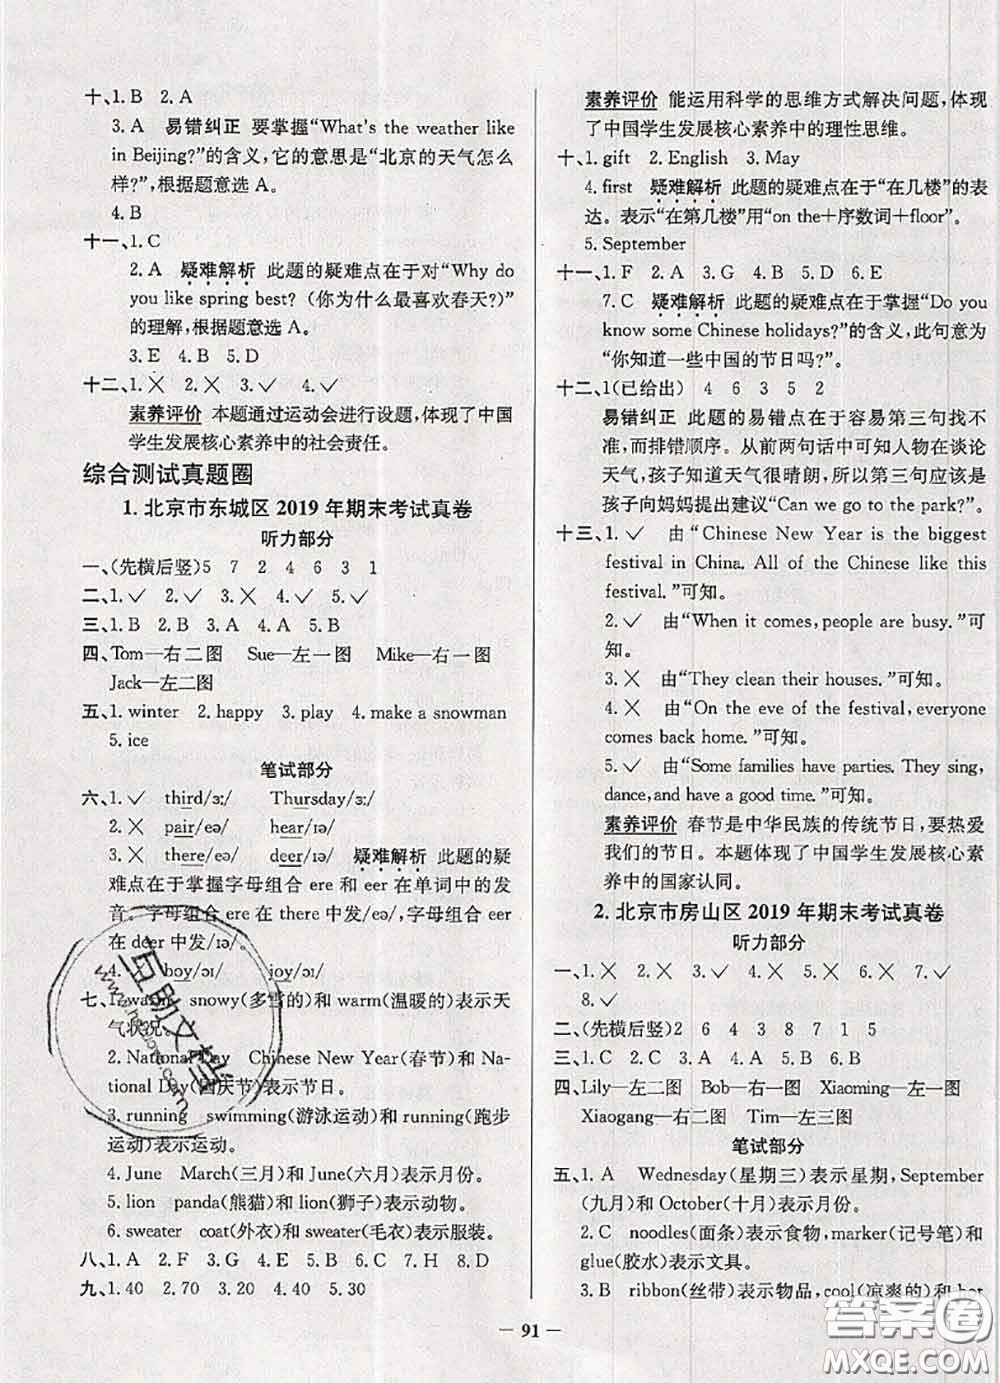 十、1. B 2. A
3. A 易错纠正 要掌握“What's the weather like
in Beijing?”的含义,它的意思是“北京的天气怎么
样?”,根据题意选 A。
4. B
十一、1. C
2. A 疑难解析 此题的疑难点在于对“Why do
you like spring best? (你为什么最喜欢春天?)”
的理解,根据题意选 A。
3. E 4. B 5. D
十二、1. ╳ 2. ╳ 3. ✓ 4. ✓
素养评价 本题通过运动会进行设题,体现了中国
学生发展核心素养中的社会责任。
综合测试真题圈
1. 北京市东城区 2019 年期末考试真卷
听力部分
一、(先横后竖)5 7 2 4 6 3 1
二、1. ✓ 2. ✓ 3. ╳ 4. ✓ 5. ✓
三、1. B 2. B 3. A 4. A 5. B
四、Tom—右二图 Sue—左一图 Mike—右一图
Jack—左二图
五、1. winter 2. happy 3. play 4. make a snowman
5. ice
笔试部分
六、1. ✓ third/ɜː/ Thursday/ɜː/
2. ╳ pair/eə/ hear/ɪə/
3. ╳ there/eə/ deer/ɪə/ 疑难解析 此题的疑
难点在于掌握字母组合 ere 和 eer 在单词中的发
音。字母组合 ere 在 there 中发/eə/,字母组合 eer
在 deer 中发/ɪə/。
4. boy/ɔɪ/ joy/ɔɪ/
七、1. snowy(多雪的)和 warm(温暖的)表示天
气状况。
2. National Day Chinese New Year(春节)和 Na-
tional Day(国庆节)表示节日。
3. running swimming(游泳运动)和 running(跑步
运动)表示运动。
4. June March(三月)和 June(六月)表示月份。
5. lion panda(熊猫)和 lion(狮子)表示动物。
6. sweater coat(外衣)和 sweater(毛衣)表示服装。
八、1. A 2. F 3. G 4. E 5. B 6. C 7. H 8. D
九、1. 40 2. 70 3. 20 4. 50 5. 30
素养评价 能运用科学的思维方式解决问题,体现
了中国学生发展核心素养中的理性思维。
十、1. gift 2. English 3. May
4. first 疑难解析 此题的疑难点在于“在几楼”的表
达。表示“在第几楼”用“on the+序数词+floor”。
5. September
十一、1. F 2. A 3. G 4. B 5. D 6. E
7. C 疑难解析 此题的疑难点在于掌握“Do you
know some Chinese holidays?”的含义,此句意为
“你知道一些中国的节日吗?”。
十二、1(已给出) 4 6 3 5 2
易错纠正 此题的易错点在于容易第三句找不
准,而排错顺序。从前两句话中可知人物在谈论
天气,孩子知道天气很晴朗,所以第三句应该是
孩子向妈妈提出建议“Can we go to the park?”。
十三、1. ✓ 由“Chinese New Year is the biggest
festival in China. All of the Chinese like this
festival. ”可知。
2. ✓ 由“When it comes, people are busy. ”可
知。
3. ╳ 由“They clean their houses. ”可知。
4. ╳ 由“On the eve of the festival, everyone
comes back home. ”可知。
5. ✓ 由“Some families have parties. They sing,
dance, and have a good time. ”可知。
素养评价 春节是中华民族的传统节日,要热爱
我们的节日。本题体现了中国学生发展核心素
养中的国家认同。
2. 北京市房山区 2019 年期末考试真卷
听力部分
一、1. ╳ 2. ╳ 3. ✓ 4. ╳ 5. ╳ 6. ╳ 7. ✓
8. ✓
二、(先横后竖)2 6 4 3 8 7 1 5
三、1. C 2. C 3. A 4. A 5. B 6. B
四、Lily—左二图 Bob—右一图 Xiaoming—左一图
Xiaogang—右二图 Tim—左三图
笔试部分
五、1. A Wednesday(星期三)表示星期,September
(九月)和 October(十月)表示月份。
2. C noodles(面条)表示食物,marker(记号笔)和
glue(胶水)表示文具。
3. B ribbon(丝带)表示物品,cool(凉爽的)和 hot
— 91 —
互助文档
答案圈
MXQE.COM